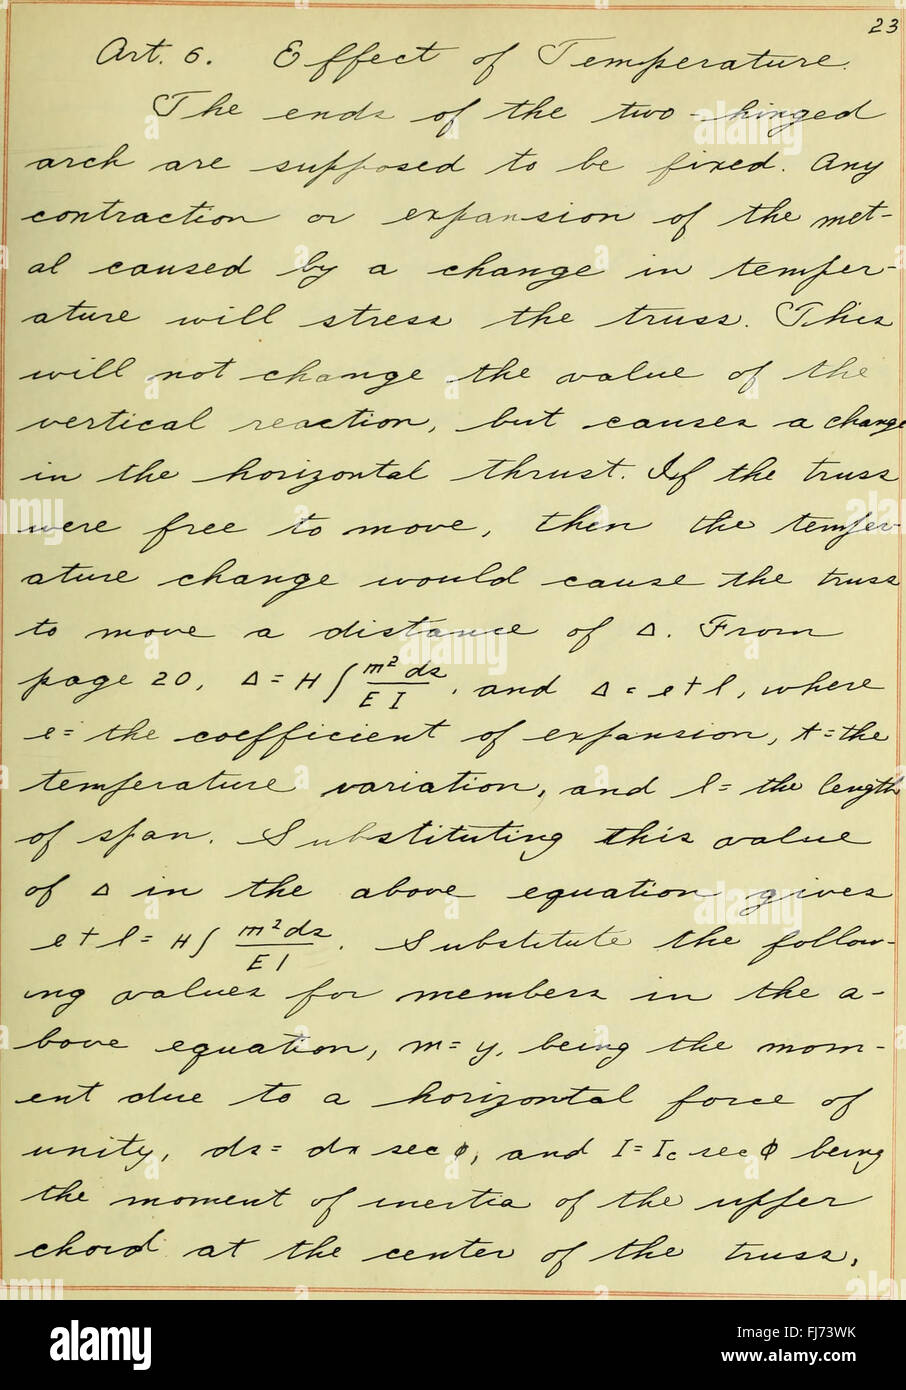 23
Art. 6. Effect of Temperature.
The ends of the two-hinged
arch are supposed to be fixed. Any
contraction or expansion of the met-
al caused by a change in temper-
ature will stress the truss. This
will not change the value of the
vertical reaction, but causes a change
in the horizontal thrust. If the truss
were free to move, then the temper-
ature change would cause the truss
to move a distance of Δ. From
page 20, Δ = H ∫ m² ds / E I, and Δ = e t l, where
e = the coefficient of expansion, t = the
temperature variation, and l = the length
of span. Substituting this value
of Δ in the above equation gives
e t l = H ∫ m² ds / E I. Substitute the follow-
ing values for members in the a-
bove equation, m = y, being the mom-
ent due to a horizontal force of
unity, ds = dx sec φ, and I = Ic sec φ being
the moment of inertia of the upper
chord at the center of the truss,
alamy stock photo
FJ73WK
www.alamy.com